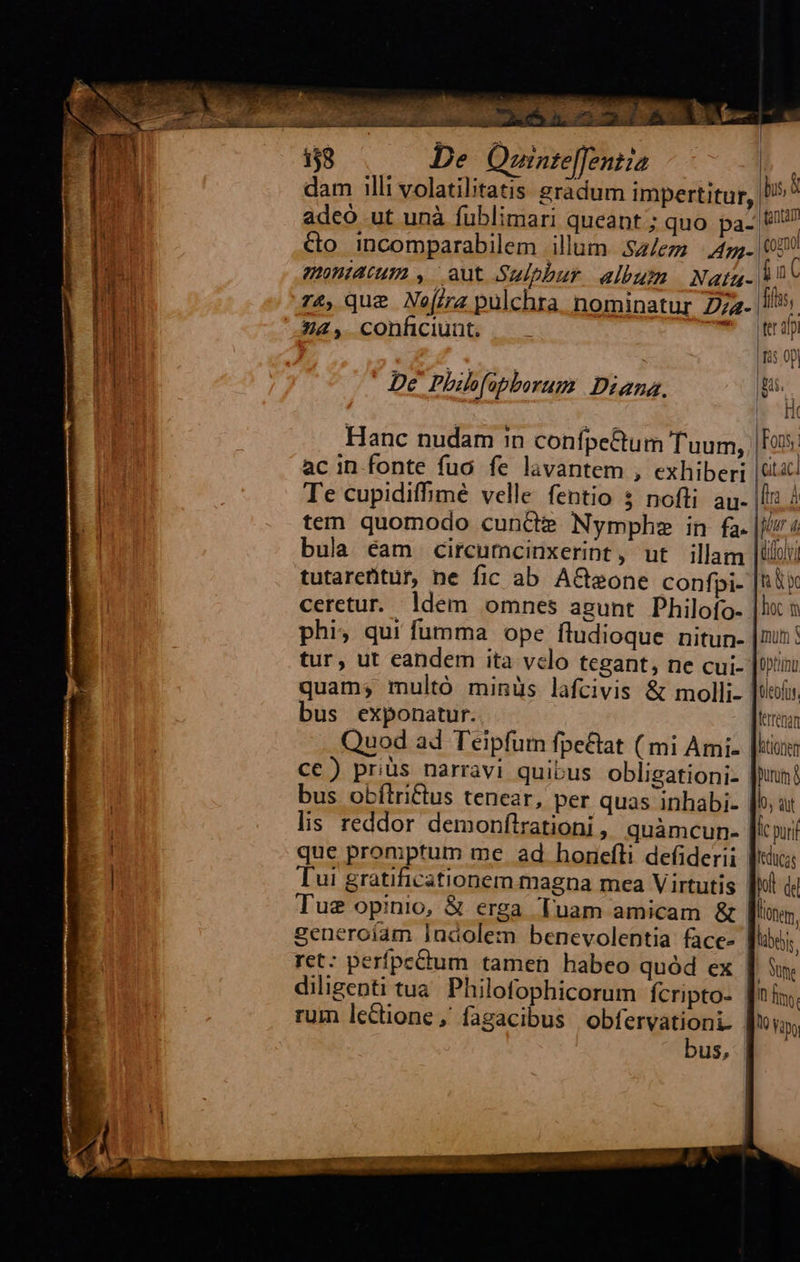 158 De Quinteſſentia
dam illi volatilitatis gradum impertitur,
adeò ut unà ſublimari queant ; quo pa-
cto incomparabilem illum Salem Am-
moniacum , aut Sulphur album Natu-
ræ, quæ Noſtra pulchra nominatur Dia-
na, conficiunt.
De Philoſophorum Diana.
Hanc nudam in conſpectum Tuum,
ac in fonte ſuo ſe lavantem , exhiberi
Te cupidiſſimé velle ſentio ; noſti au-
tem quomodo cunctæ Nymphæ in fa-
bula éam circumcinxerint, ut illam
tutarentur, ne ſic ab Actæone conſpi-
ceretur. Idem omnes agunt Philoſo-
phi, qui ſumma ope ſtudioque nitun-
tur, ut eandem ita velo tegant, ne cui-
quam, multò minùs laſcivis & molli-
bus exponatur.
Quod ad Teipſum ſpectat ( mi Ami-
ce ) priùs narravi quibus obligationi-
bus obſtrictus tenear, per quas inhabi-
lis reddor demonſtrationi , quàmcun-
que promptum me ad honeſti deſiderii
Tui gratificationem magna mea Virtutis
Tuæ opinio, & erga Tuam amicam &
generoſam Indolem benevolentia face-
ret: perſpectum tamen habeo quòd ex
diligenti tua Philoſophicorum ſcripto-
rum lectione , ſagacibus obſervationi-
bus,